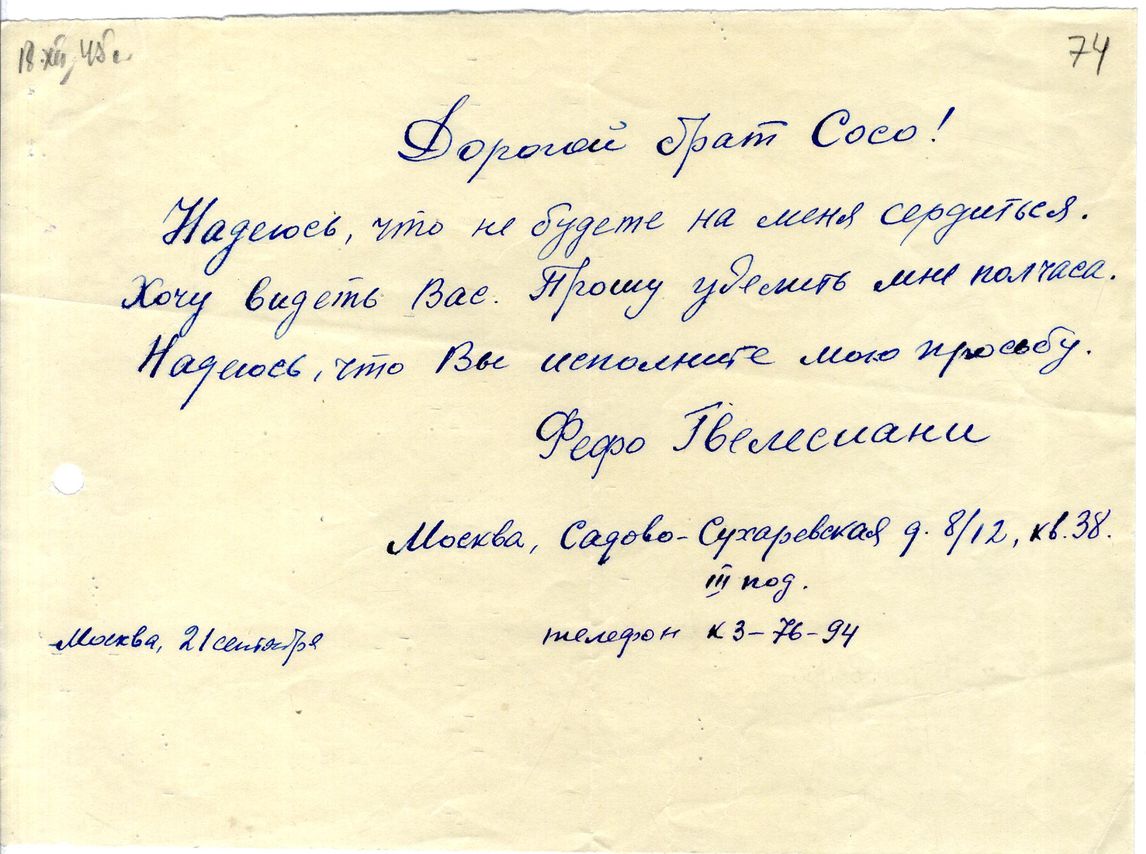 18.XII.45г.
74
Дорогой брат Сосо!
Надеюсь, что не будете на меня сердиться.
Хочу видеть Вас. Прошу уделить мне полчаса.
Надеюсь, что Вы исполните мою просьбу.
Фефо Гвелесиани
Москва, Садово-Сухаревская д. 8/12, кв. 38.
III под.
Москва, 21 сентября
телефон К 3-76-94